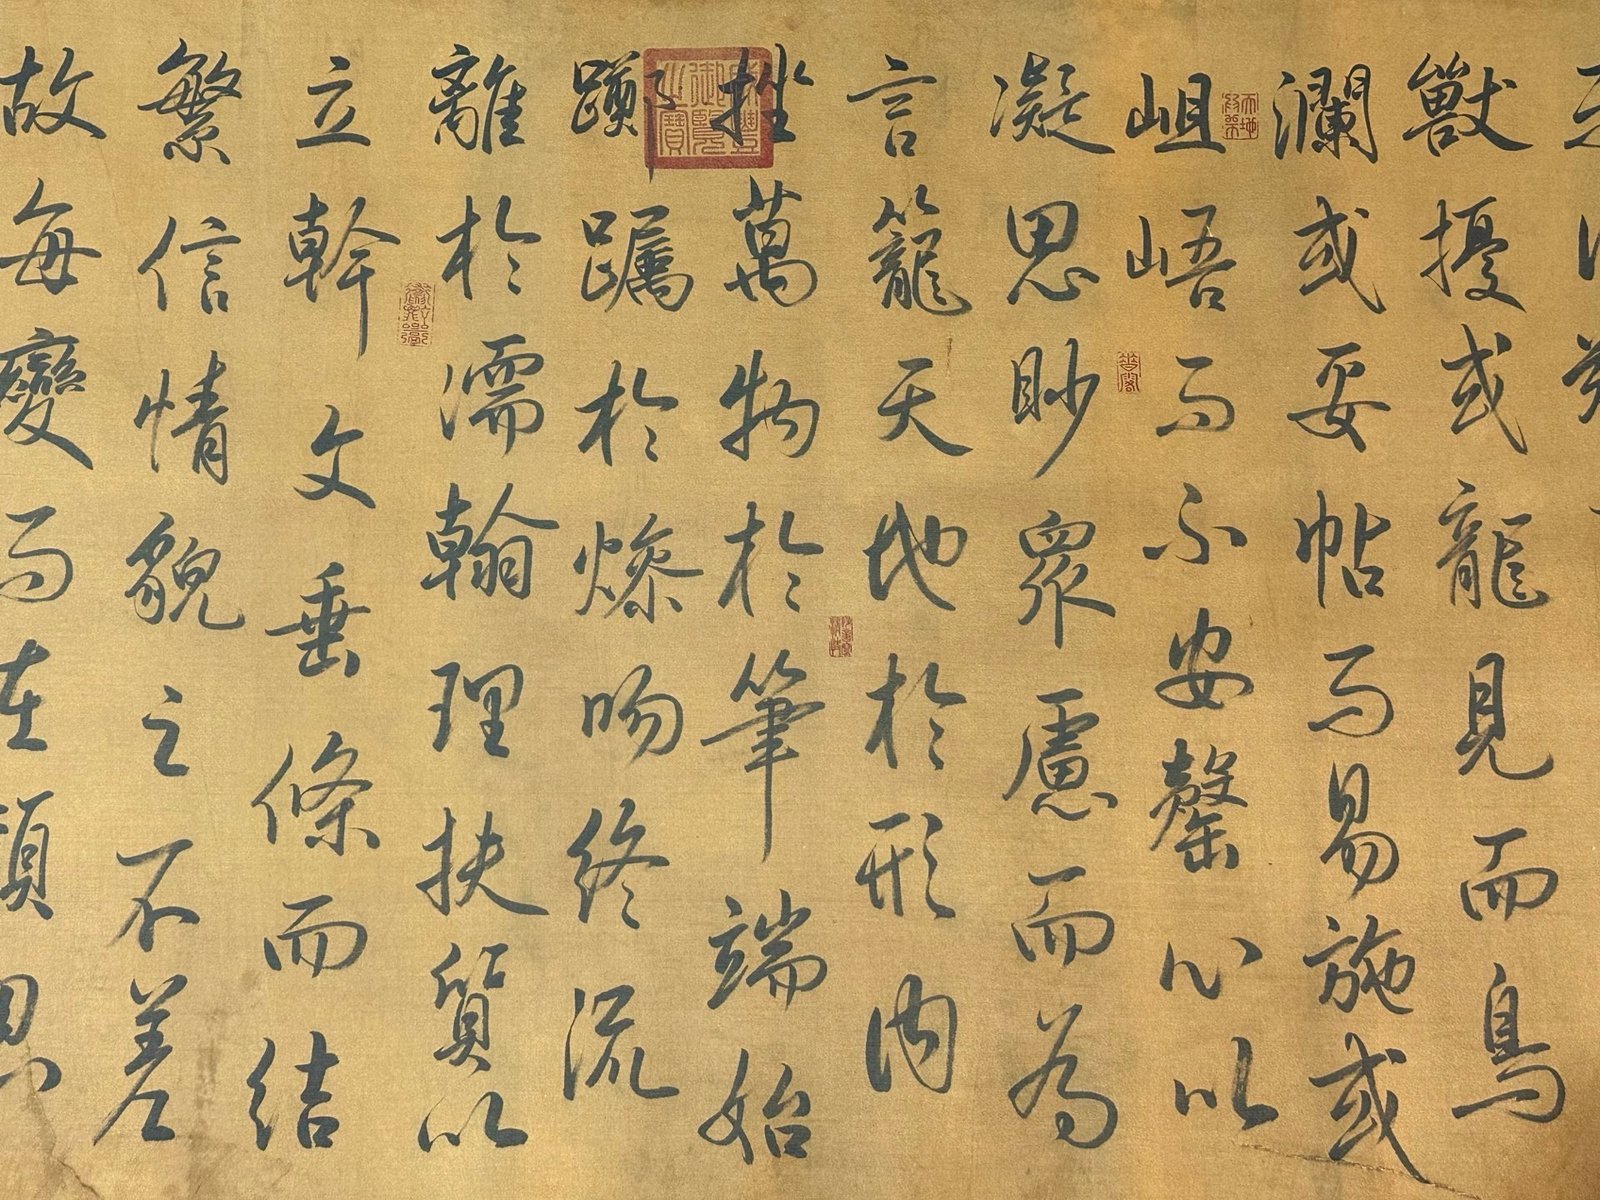 獸擾或龍見而鳥
瀾或妥帖而易施或
岨峿而不安罄心以
凝思眇衆慮而為
言籠天地於形內
挫萬物於筆端始
躑躅於燥吻終流
離於濡翰理扶質以
立幹文垂條而結
繁信情貌之不差
故每變而在顏思
咸豐御覽之寶